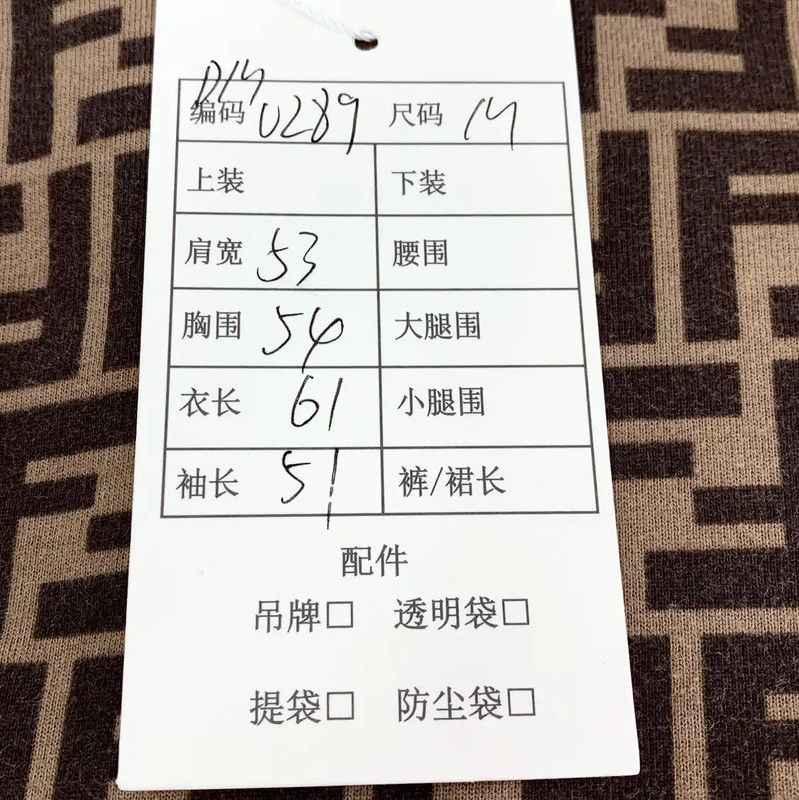 编码 0289 尺码 M
上装 下装
肩宽 53 腰围
胸围 54 大腿围
衣长 61 小腿围
袖长 51 裤/裙长
配件
吊牌□ 透明袋□
提袋□ 防尘袋□